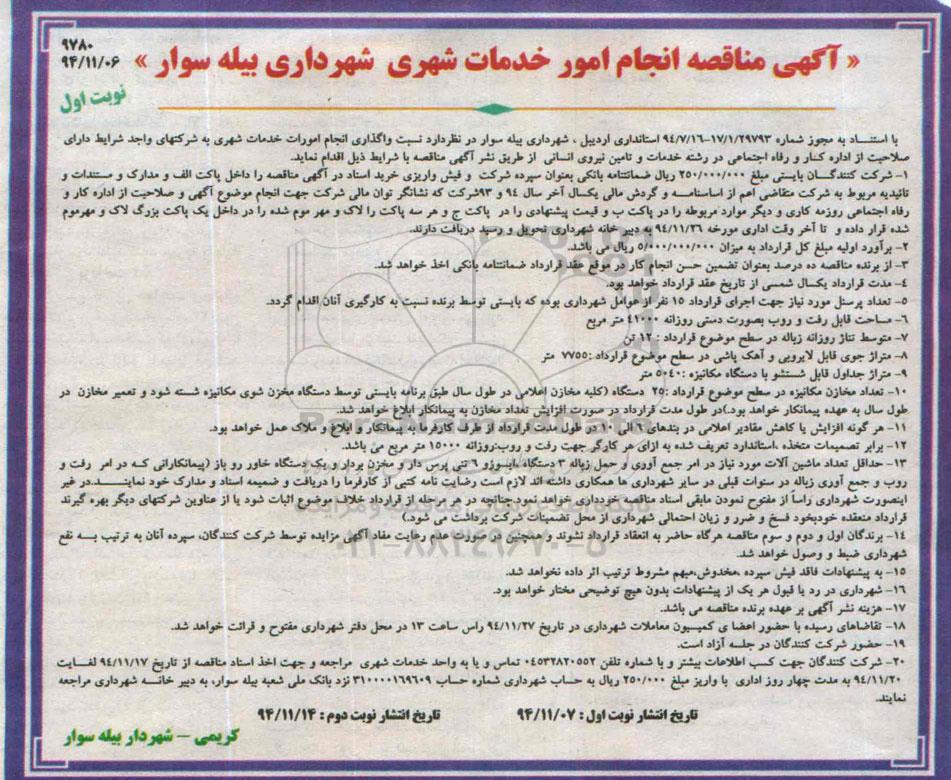 ۹۷۸۰
۹۴/۱۱/۰۶
« آگهی مناقصه انجام امور خدمات شهری شهرداری بیله سوار »
نوبت اول
با استناد به مجوز شماره ۱۷/۱/۲۹۷۹۳-۹۴/۷/۱۶ استانداری اردبیل ، شهرداری بیله سوار در نظردارد نسبت واگذاری انجام امورات خدمات شهری به شرکتهای واجد شرایط دارای
صلاحیت از اداره کار و رفاه اجتماعی در رشته خدمات و تامین نیروی انسانی از طریق نشر آگهی مناقصه با شرایط ذیل اقدام نماید.
۱- شرکت کنندگان بایستی مبلغ ۲۵۰/۰۰۰/۰۰۰ ریال ضمانتنامه بانکی بعنوان سپرده شرکت و فیش واریزی خرید اسناد در آگهی مناقصه را داخل پاکت الف و مدارک و مستندات و
تائیدیه مربوط به شرکت متقاضی اعم از اساسنامه و گردش مالی یکسال آخر سال ۹۴ و ۹۳شرکت که نشانگر توان مالی شرکت جهت انجام موضوع آگهی و صلاحیت از اداره کار و
رفاه اجتماعی روزمه کاری و دیگر موارد مربوطه را در پاکت ب و قیمت پیشنهادی را در پاکت ج و هر سه پاکت را لاک و مهر موم شده را در داخل یک پاکت بزرگ لاک و مهرموم
شده قرار داده و تا آخر وقت اداری مورخه ۹۴/۱۱/۲۶ به دبیر خانه شهرداری تحویل و رسید دریافت دارند.
۲- برآورد اولیه مبلغ کل قرارداد به میزان ۵/۰۰۰/۰۰۰/۰۰۰ ریال می باشد.
۳- از برنده مناقصه ده درصد بعنوان تضمین حسن انجام کار در موقع عقد قرارداد ضمانتنامه بانکی اخذ خواهد شد.
۴- مدت قرارداد یکسال شمسی از تاریخ عقد قرارداد خواهد بود.
۵- تعداد پرسنل مورد نیاز جهت اجرای قرارداد ۱۵ نفر از عوامل شهرداری بوده که بایستی توسط برنده نسبت به کارگیری آنان اقدام گردد.
۶- مساحت قابل رفت و روب بصورت دستی روزانه ۴۱۰۰۰ متر مربع
۷- متوسط تناژ روزانه زباله در سطح موضوع قرارداد : ۱۲ تن
۸- متراژ جوی قابل لایروبی و آهک پاشی در سطح موضوع قرارداد :۷۷۵۵ متر
۹- متراژ جداول قابل شستشو با دستگاه مکانیزه :۵۰۴۰ متر
۱۰- تعداد مخازن مکانیزه در سطح موضوع قرارداد :۲۵ دستگاه (کلیه مخازن اعلامی در طول سال طبق برنامه بایستی توسط دستگاه مخزن شوی مکانیزه شسته شود و تعمیر مخازن در
طول سال به عهده پیمانکار خواهد بود.)در طول مدت قرارداد در صورت افزایش تعداد مخازن به پیمانکار ابلاغ خواهد شد.
۱۱- هر گونه افزایش یا کاهش مقادیر اعلامی در بندهای ۶ الی ۱۰ در طول مدت قرارداد از طرف کارفرما به پیمانکار و ابلاغ و ملاک عمل خواهد بود.
۱۲- برابر تصمیمات متخذه ،استاندارد تعریف شده به ازای هر کارگر جهت رفت و روب:روزانه ۱۵۰۰۰ متر مربع می باشد.
۱۳- حداقل تعداد ماشین آلات مورد نیاز در امر جمع آووی و حمل زباله ۳ دستگاه ،ایسوزو ۶ تنی پرس دار و مخزن بردار و یک دستگاه خاور رو باز (پیمانکارانی که در امر رفت و
روب و جمع آوری زباله در سنوات قبلی در سایر شهرداری ها همکاری داشته اند لازم است رضایت نامه کتبی از کارفرما را دریافت و ضمیمه اسناد و مدارک خود نمایند.در غیر
اینصورت شهرداری راساً از مفتوح نمودن مابقی اسناد مناقصه خودداری خواهد نمود.چنانچه در هر مرحله از قرارداد خلاف موضوع اثبات شود یا از عناوین شرکتهای دیگر بهره گیرند
قرارداد منعقده خودبخود فسخ و ضرر و زیان احتمالی شهرداری از محل تضمینات شرکت برداشت می شود.)
۱۴- برندگان اول و دوم و سوم مناقصه هرگاه حاضر به انعقاد قرارداد نشوند و همچنین در صورت عدم رعایت مفاد آگهی مزایده توسط شرکت کنندگان، سپرده آنان به ترتیب به نفع
شهرداری ضبط و وصول خواهد شد.
۱۵- به پیشنهادات فاقد فیش سپرده ،مخدوش،مبهم مشروط ترتیب اثر داده نخواهد شد.
۱۶- شهرداری در رد یا قبول هر یک از پیشنهادات بدون هیچ توضیحی مختار خواهد بود.
۱۷- هزینه نشر آگهی بر عهده برنده مناقصه می باشد.
۱۸- تقاضاهای رسیده با حضور اعضا ی کمیسیون معاملات شهرداری در تاریخ ۹۴/۱۱/۲۷ راس ساعت ۱۳ در محل دفتر شهرداری مفتوح و قرائت خواهد شد.
۱۹- حضور شرکت کنندگان در جلسه آزاد است.
۲۰- شرکت کنندگان جهت کسب اطلاعات بیشتر و با شماره تلفن ۰۴۵۳۲۸۲۰۵۵۲ تماس و یا به واحد خدمات شهری مراجعه و جهت اخذ اسناد مناقصه از تاریخ ۹۴/۱۱/۱۷ لغایت
۹۴/۱۱/۲۰ به مدت چهار روز اداری با واریز مبلغ ۲۵۰/۰۰۰ ریال به حساب شهرداری شماره حساب ۳۱۰۰۰۰۱۶۹۶۰۹ نزد بانک ملی شعبه بیله سوار، به دبیر خانه شهرداری مراجعه
نمایند.
تاریخ انتشار نوبت اول : ۹۴/۱۱/۰۷
تاریخ انتشار نوبت دوم : ۹۴/۱۱/۱۴
کریمی – شهردار بیله سوار
۰۲۱-۸۸۳۴۹۶۷۰-۵